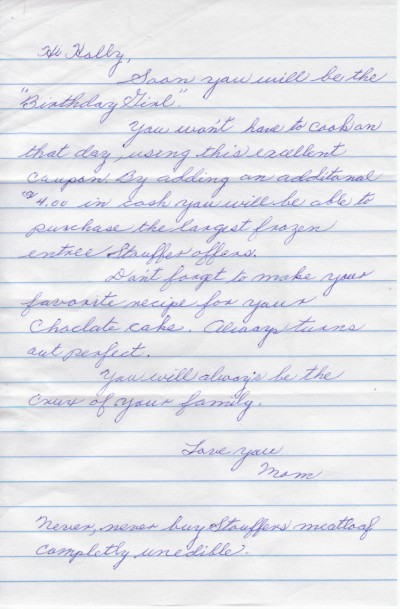 Hi Holly,
Soon you will be the
"Birthday Girl".
You won't have to cook on
that day, using this excellent
coupon. By adding an additonal
$4.00 in cash you will be able to
purchase the largest frozen
entree Stouffer offers.
Don't forget to make your
favorite recipe for your
Choclate cake. Always turns
out perfect.
You will always be the
Crux of your family.
Love you
Mom
Never, never buy Stouffers meatloaf
completly unedible.